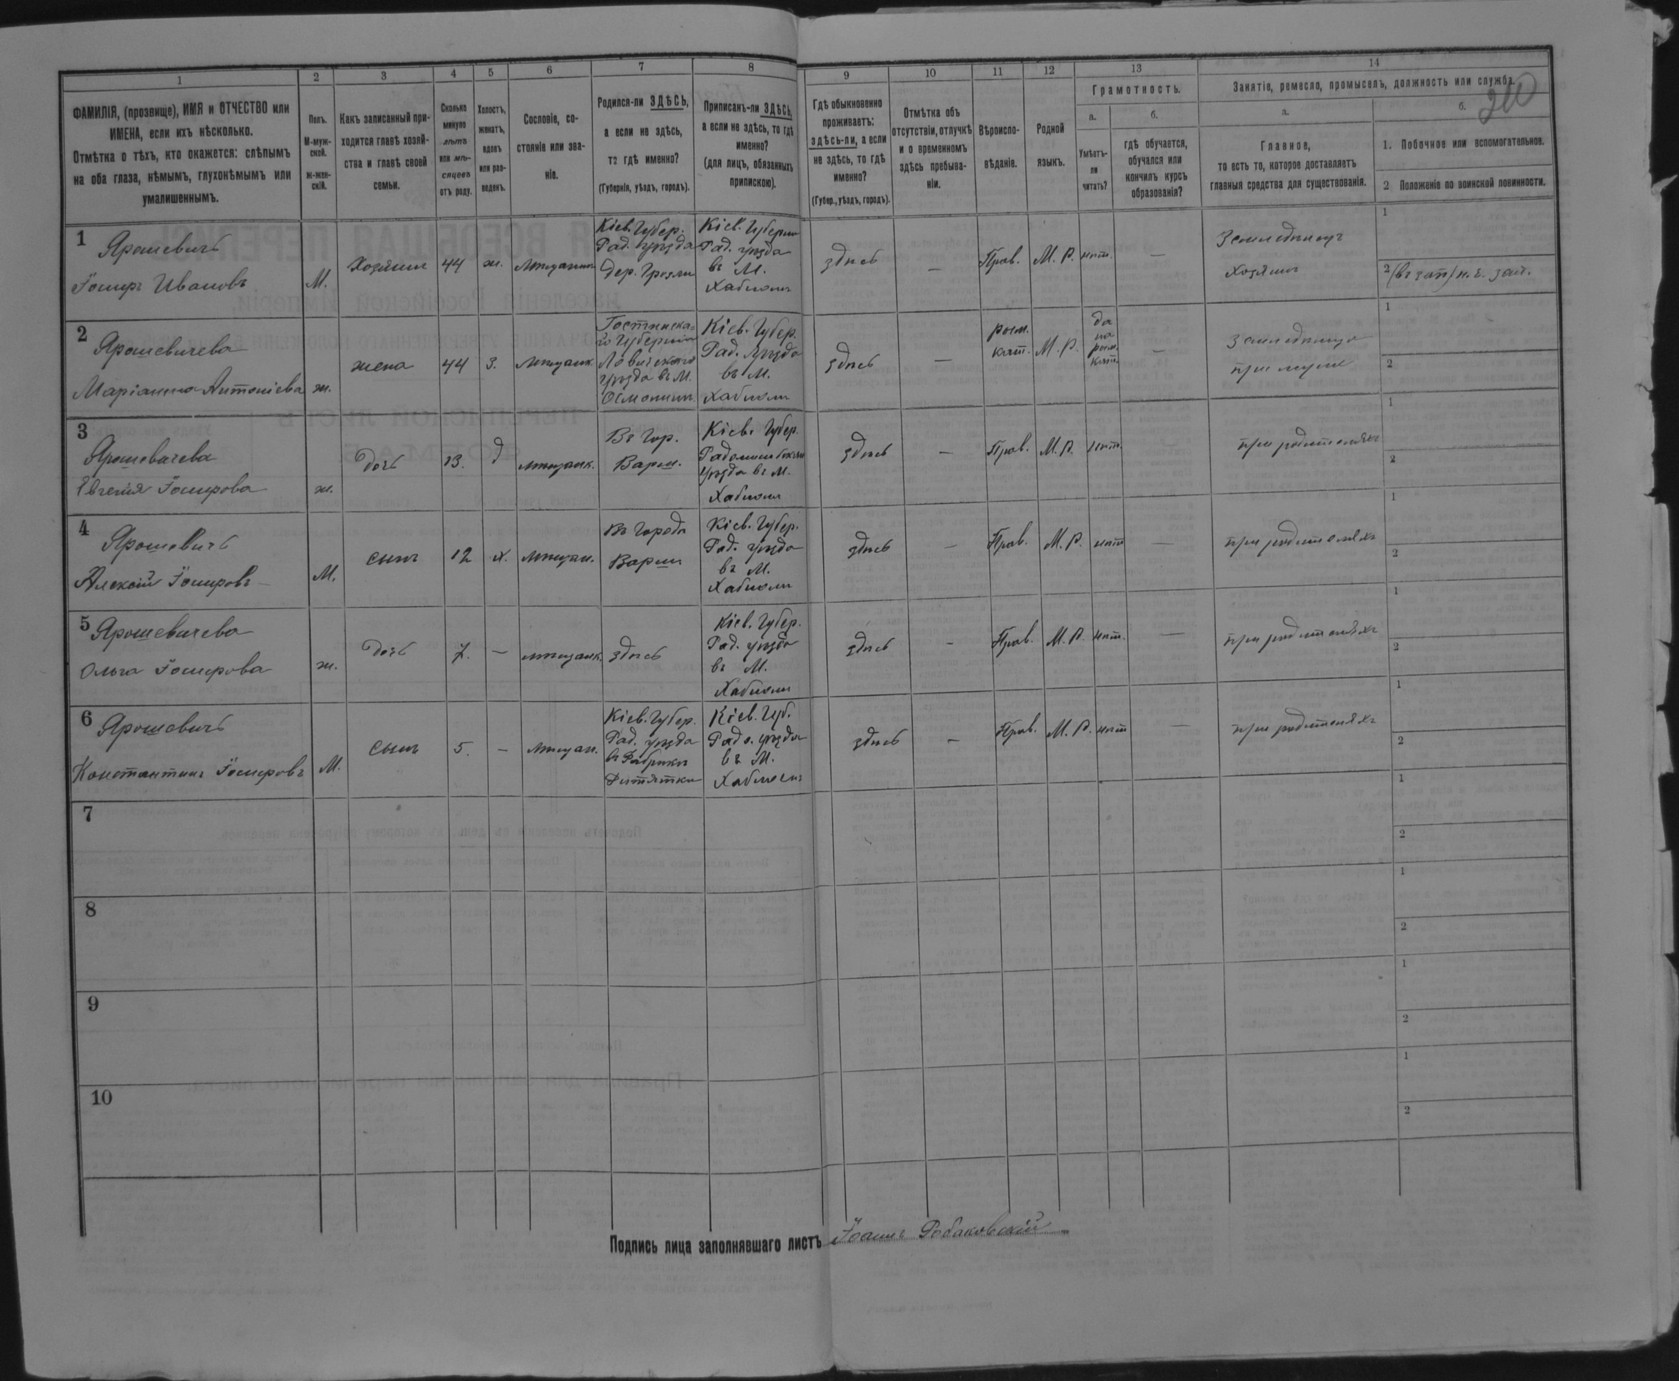 1
2
3
4
5
6
7
8
9
10
11
12
13
14
ФАМИЛІЯ, (прозвище), ИМЯ и ОТЧЕСТВО или
ИМЕНА, если ихъ нѣсколько.
Отмѣтка о тѣхъ, кто окажется: слѣпымъ
на оба глаза, нѣмымъ, глухонѣмымъ или
умалишеннымъ.
Полъ.
М-муж-
ской.
ж-жен-
скій.
Какъ записанный при-
ходится главѣ хозяй-
ства и главѣ своей
семьи.
Сколько
минуло
лѣтъ
или мѣ-
сяцевъ
отъ роду.
Холостъ,
женатъ,
вдовъ
или раз-
веденъ.
Сословіе, со-
стояніе или зва-
ніе.
Родился-ли ЗДѢСЬ,
а если не здѣсь,
то гдѣ именно?
(Губернія, уѣздъ, городъ).
Приписанъ-ли ЗДѢСЬ,
а если не здѣсь, то гдѣ
именно?
(для лицъ, обязанныхъ
припискою).
Гдѣ обыкновенно
проживаетъ:
здѣсь-ли, а если
не здѣсь, то гдѣ
именно?
(Губер., уѣздъ, городъ).
Отмѣтка объ
отсутствіи, отлучкѣ
и о временномъ
здѣсь пребыва-
ніи.
Вѣроиспо-
вѣданіе.
Родной
языкъ.
Грамотность.
а.
Умѣетъ-
ли
читать?
б.
гдѣ обучается,
обучался или
кончилъ курсъ
образованія?
Занятіе, ремесло, промыселъ, должность или служба.
240
а.
Главное,
то есть то, которое доставляетъ
главныя средства для существованія.
б.
1. Побочное или вспомогательное.
2 Положеніе по воинской повинности.
1
Ярошевичъ
Іосифъ Ивановъ
М.
Хозяинъ
44
ж.
мѣщанинъ
Кіев. Губер.
Рад. уѣзда
дер. Грезли
Кіев. Губерніи
Рад. уѣзда
въ М.
Хабномъ
здѣсь
—
Прав.
М. Р.
нѣт.
—
Земледѣлецъ
хозяинъ
1
2
2
Ярошевичева
Маріанна Антоніева
ж.
жена
44
З.
мѣщанк.
Губерніи
уѣзда въ М.
Кіев. Губер.
Рад. уѣзда
въ М.
Хабномъ
здѣсь
—
рим.
кат.
М. Р.
да
по
рим.
кат.
—
земледѣліе
при мужѣ
1
2
3
Ярошевичева
Евгенія Іосифова
ж.
дочь
13.
д
мѣщанк.
Въ Гор.
Варш.
Кіев. Губер.
Радомысльскаго
уѣзда въ М.
Хабномъ
здѣсь
—
Прав.
М. Р.
нѣт.
при родителяхъ
1
2
4
Ярошевичъ
Алексѣй Іосифовъ
М.
сынъ
12
х.
мѣщан.
Въ Городѣ
Варш
Кіев. Губер.
Рад. уѣзда
въ М.
Хабномъ
здѣсь
—
Прав.
М. Р.
нѣт
—
при родителяхъ
1
2
5
Ярошевичева
Ольга Іосифова
ж.
дочь
7.
—
мѣщанк.
здѣсь
Кіев. Губер.
Рад. уѣзда
въ М.
Хабномъ
здѣсь
—
Прав.
М. Р.
нѣт.
—
при родителяхъ
1
2
6
Ярошевичъ
Константинъ Іосифовъ
М.
сынъ
5.
—
мѣщан.
Кіев. Губер.
Рад. уѣзда
въ Фабрикѣ
Дитятки
Кіев. Губ.
Радо. уѣзда
въ М.
Хабномъ
здѣсь
—
Прав.
М. Р.
нѣт
—
при родителяхъ
1
2
7
1
2
8
1
2
9
1
2
10
1
2
Подпись лица заполнявшаго листъ
Іоаннъ Рабаковскій